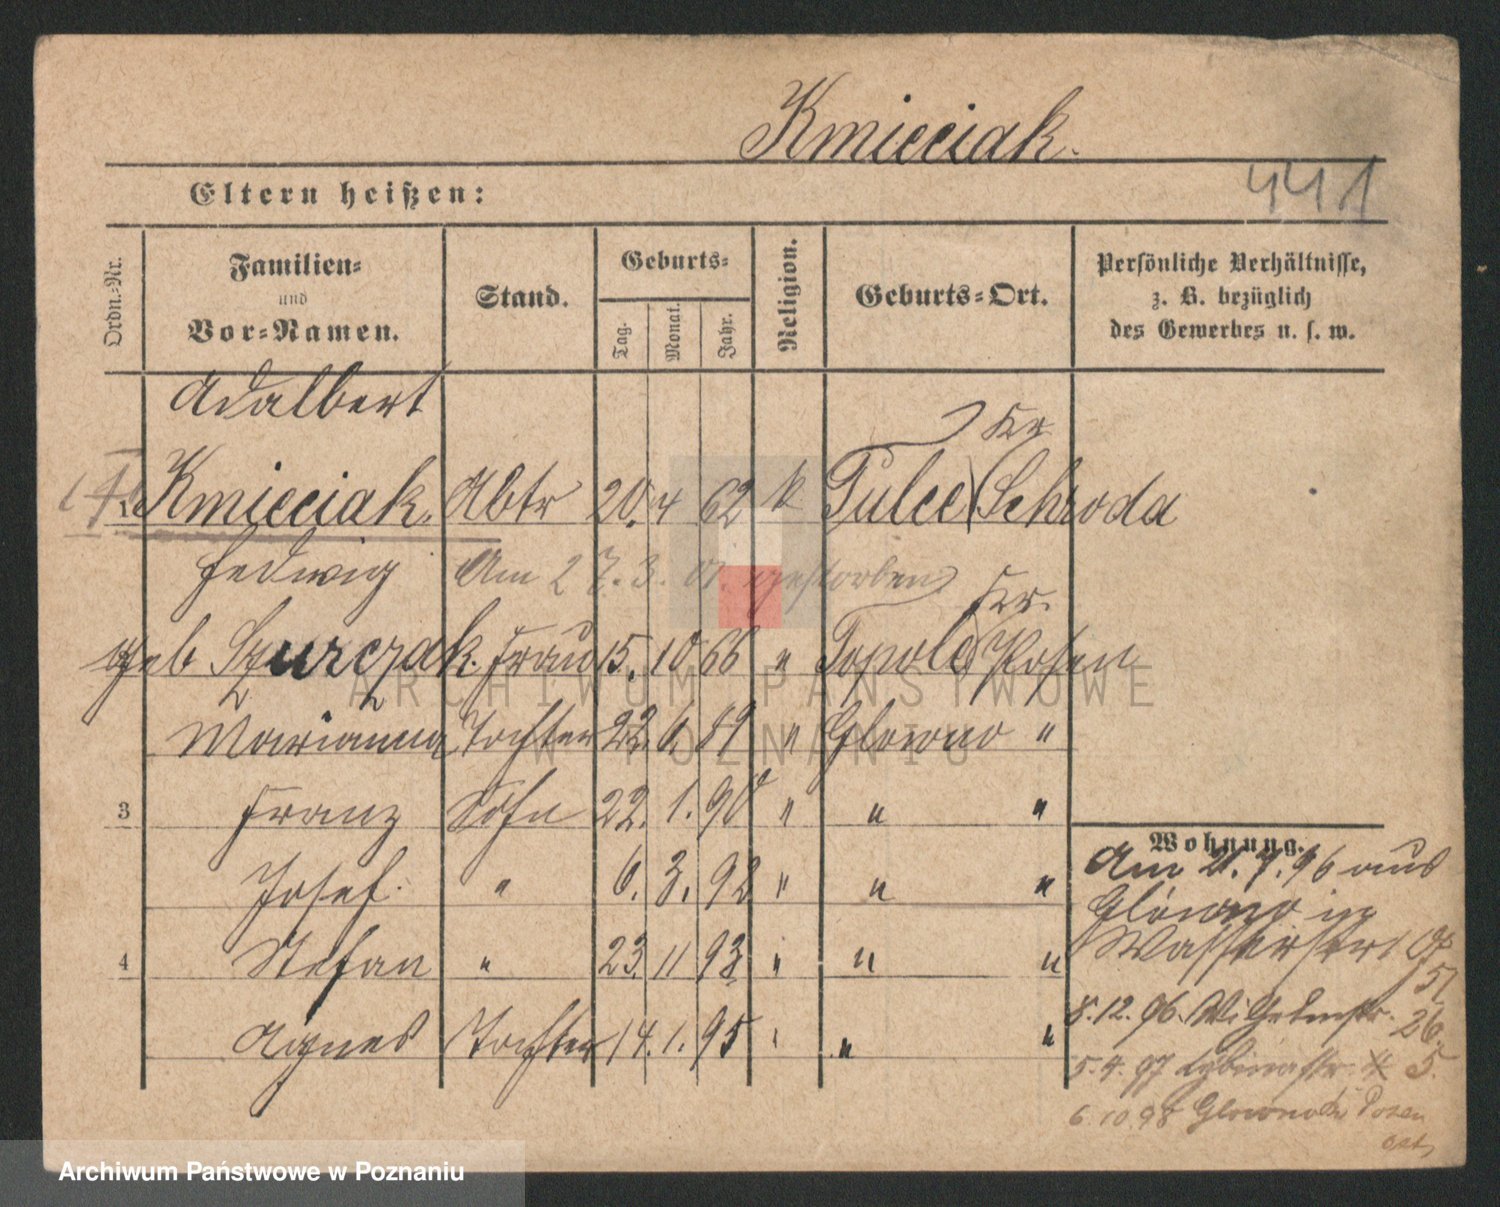 Kmieciak.
441
Eltern heißen:
Ordn.-Nr.
Familien-
und
Vor-Namen.
Stand.
Geburts-
Tag.
Monat.
Jahr.
Religion.
Geburts-Ort.
Persönliche Verhältnisse,
z. B. bezüglich
des Gewerbes u. s. w.
Adalbert
Kr.
Kmieciak. Abtr 20. 4 62 k. Tulce (Schroda
Hedwig Am 27. 3. 01. gestorben
Kr.
geb Szurczak. Frau 15. 10 66 " Topola Posen
Marianna Tochter 22. 6. 89 " Glowno "
3 Franz Sohn 22. 1. 90 " " "
Josef. " 6. 3. 92 " " "
4 Stefan " 23. 11 93 " " "
Agnes Tochter 14. 1. 95 " " "
Wohnung.
Am 21. 7. 96 aus
Glowno in
Wasserstr
51
8. 12. 96. Wilhelmstr. 26.
5. 4. 97 5.
6. 10. 98 Glowno Kr Posen
Ost,
ARCHIWUM PAŃSTWOWE
W POZNANIU
Archiwum Państwowe w Poznaniu